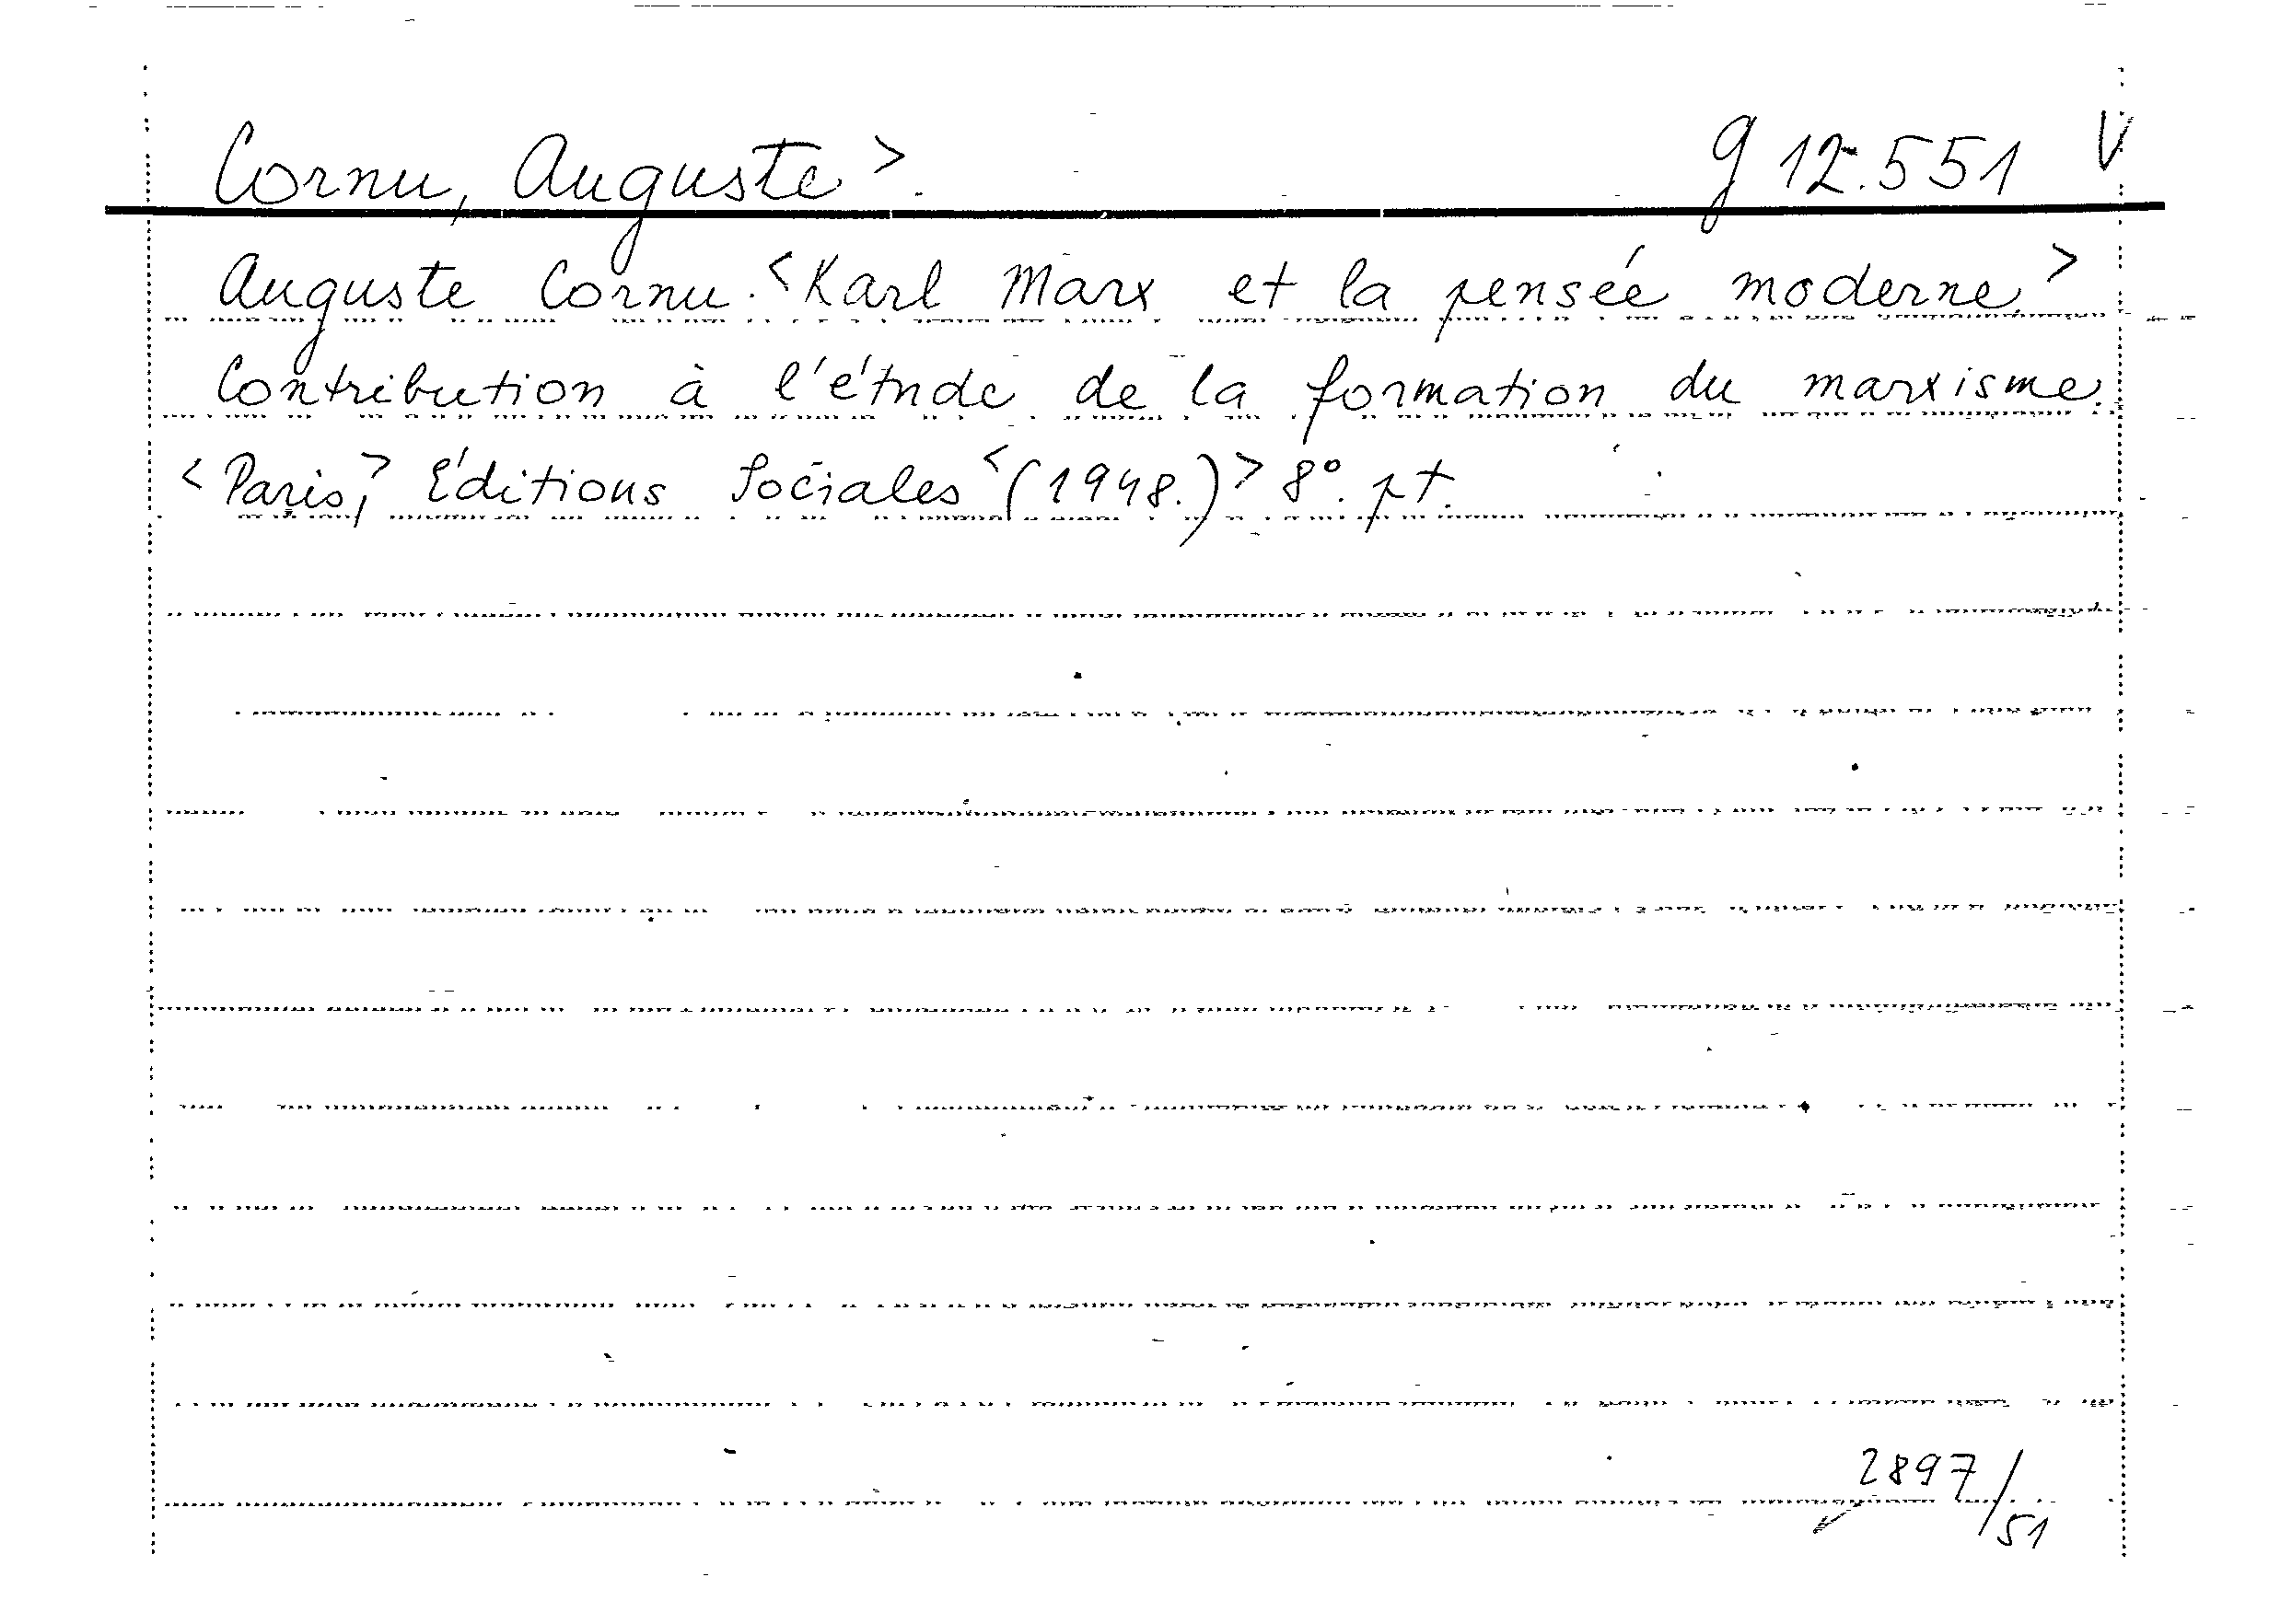 Cornu, Auguste>. g 12.551 V
Auguste Cornu. <Karl Marx et la pensée moderne.>
Contribution à l'étude de la formation du marxisme.
<Paris,> Éditions Sociales <(1948.)> 8°. pt.
2897/51